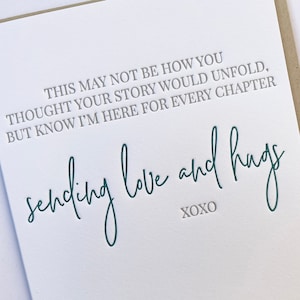 THIS MAY NOT BE HOW YOU
THOUGHT YOUR STORY WOULD UNFOLD,
BUT KNOW I'M HERE FOR EVERY CHAPTER
sending love and hugs
XOXO